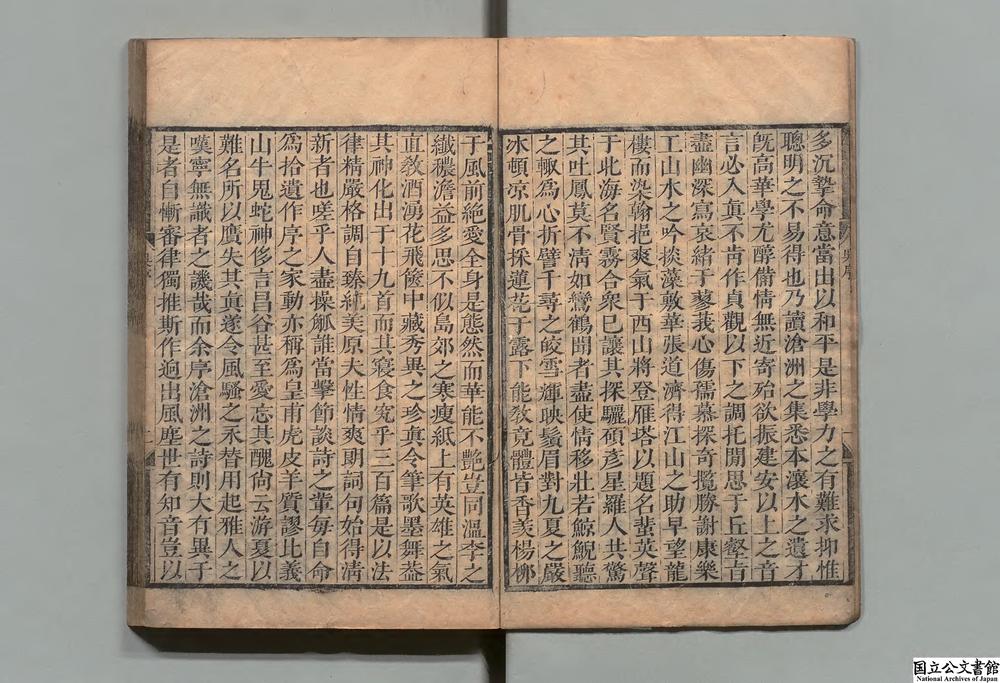 多沉摯命意當出以和平是非學力之有難求抑惟
聰明之不易得也乃讀滄洲之集悉本瀼水之遺才
既高華學尤醇備情無近寄殆欲振建安以上之音
言必入眞不肯作貞觀以下之調托閒思于丘壑言
盡幽深寫哀緒于蓼莪心傷孺慕探奇攬勝謝康樂
工山水之吟掞藻敷華張道濟得江山之助早望龍
樓而染翰挹爽氣于西山將登雁塔以題名蜚英聲
于北海名賢霧合衆已讓其探驪碩彥星羅人共驚
其吐鳳莫不清如鸞鶴聞者盡使情移壯若鯨鯢聽
之輙爲心折譬千尋之皎雪輝映鬚眉對九夏之嚴
冰頓凉肌骨採蓮花于露下能敎竟體皆香羨楊柳
于風前絶愛全身是態然而華能不艷豈同溫李之
纖穠澹益多思不似島郊之寒瘦紙上有英雄之氣
直敎酒湧花飛篋中藏秀異之珍眞令筆歌墨舞葢
其神化出于十九首而其寢食究乎三百篇是以法
律精嚴格調自臻純美原大性情爽朗詞句始得淸
新者也嗟乎人盡操觚誰當擊節談詩之輩每自命
爲拾遺作序之家動亦稱爲皇甫虎皮羊質謬比義
山牛鬼蛇神侈言昌谷甚至愛忘其醜尙云游夏以
難名所以贋失其眞遂令風騷之永替用起雅人之
嘆寧無識者之譏哉而余序滄洲之詩則大有異于
是者自慚審律獨推斯作迥出風塵世有知音豈以
國立公文書館
National Archives of Japan